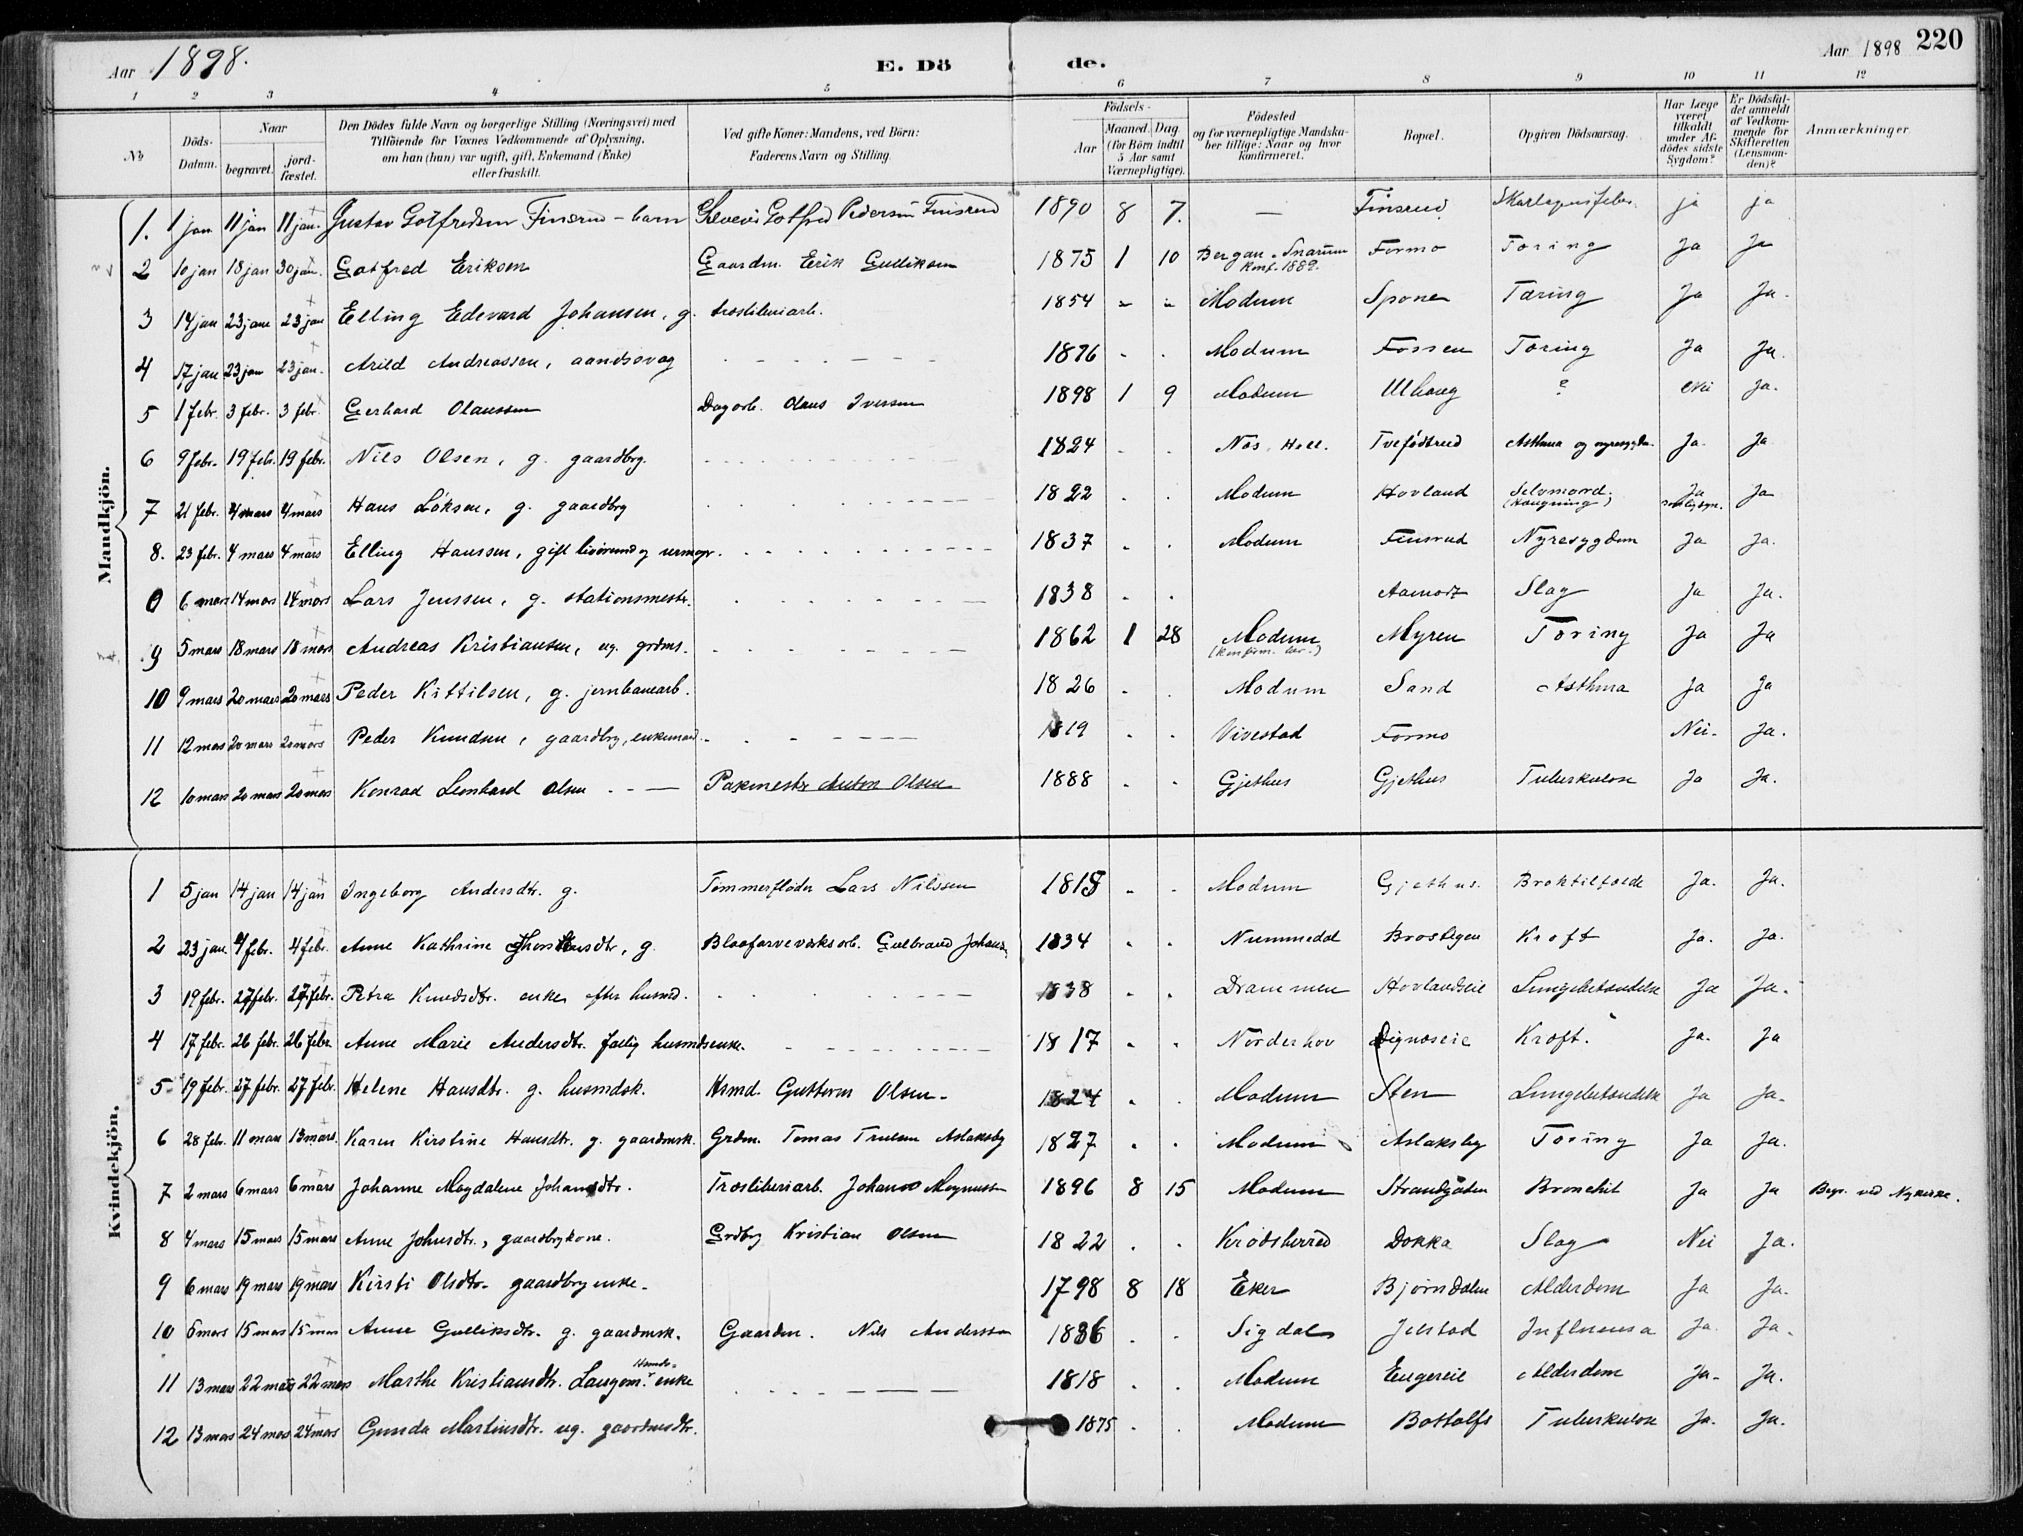 Aar 1898.
E. Dö
de.
Aar 1898
220
1 2 3 4 5 6 7 8 9 10 11 12
No
Döds-
Datum.
Naar
begravet.
jord-
fæstet.
Den Dödes fulde Navn og borgerlige Stilling (Næringsvei) med
Tilföiende for Voxnes Vedkommende af Oplysning,
om han (hun) var ugift, gift, Enkemand (Enke)
eller fraskilt.
Ved gifte Koner: Mandens, ved Börn:
Faderens Navn og Stilling.
Födsels-
Aar
Maaned. Dag
(for Börn indtil
5 Aar samt
Værnepligtige).
Födested
og for værnepligtige Mandska-
ber tillige: Naar og hvor
konfirmeret.
Bopæl.
Opgiven Dödsaarsag.
Har Læge
været
tilkaldt
under Af-
dödes sidste
Sygdom?
Er Dödsfal-
det anmeldt
af Vedkom-
mende for
Skifteretten
(Lensman-
den)?
Anmærkninger
Mandkjön.
1. 1 jan 11 jan 11 jan. Gustav Gotfredsen Finsrud - barn Gotfred Pedersen Finsrud 1890 8 7. — Finsrud ja ja
2 10 jan 18 jan 30 jan. Gotfred Eriksen Gaardm. Erik Gulliksen 1875 1 10 Bergan. Snarum Formo Tæring Ja Ja
Konf. 1889.
3 14 jan 23 jan 23 jan Elling Edevard Johansen, g. træsliberiarb. 1854 - - Modum Spone Tæring Ja Ja.
4 17 jan 23 jan 23 jan. Arild Andreassen, aandssvag 1876 . . Modum Fossen Tæring Ja Ja.
5 1 febr. 3 febr. 3 febr. Gerhard Olaussen Dagarb. Olaus Iversen 1898 1 9 Modum Ulhaug ? Nei Ja.
6 9 febr. 19 febr. 19 febr. Nils Olsen, g. gaardbrg. 1824 . . Næs. Hall. Tvefødtrud Asthma og nyresygdm. Ja. Ja
7 21 febr. 4 mars 4 mars Hans g. gaardbrg 1822 . . Modum Hovland Selvmord. Ja Ja
(hængning)
8. 23 febr. 4 mars 4 mars Elling Hanssen, gift 1837 . . Modum Finsrud Nyresygdom Ja Ja.
0 6 mars 14 mars 14 mars Lars Jenssen, g. stationsmester. 1838 . . Aamodt Slag Ja Ja.
9 5 mars 18 mars 18 mars Andreas Kristiansen, ug. grdms. 1862 1 28 Modum Myren Tæring Ja Ja
(konfirm. her.)
10 9 mars 20 mars 20 mars Peder Kittilsen, g. jernbanearb. 1826 . . Modum Sand Asthma Ja Ja
11 12 mars 20 mars 20 mars Peder Knudsen, gaardbrg, enkemand 1819 . . Vivestad Formo Nei. Ja.
12 10 mars 20 mars 20 mars Konrad Leonhard Olsen Pakmester Anton Olsen 1888 . . Gjethus Gjethus Tuberkulose Ja Ja.
Kvindekjön.
1 5 jan 14 jan 14 jan Ingeborg Andersdtr. g. Tømmerfløder Lars Nilssen 1818 . . Modum Gjethus. Broktilfælde Ja. Ja.
2 23 jan 4 febr. 4 febr. Anne Kathrine g. Blaafarveværksarb. Gulbrand Johans. 1834 . . Nummedal Brostigen Kræft Ja. Ja.
3 19 febr. 27 febr. 27 febr. Petra Knudsdtr. enke efter husmd. 1838 . . Drammen Hovlandseie Lungebetændelse Ja Ja.
4 17 febr. 26 febr. 26 febr. Anne Marie Andersdtr. fattig husmdsenke. 1817 . . Norderhov Dignæseie Kræft. Ja. Ja
5 19 febr. 27 febr. 27 febr. Helene Hansdtr. g. husmdsk. Hsmd. Guttorm Olsen. 1824 . . Modum Sten Lungebetændelse Ja Ja.
6 28 febr. 11 mars 13 mars. Karen Kirstine Hansdtr. g. gaardmsk. Grdm. Tomas Trulsen Aslaksby 1827 . . Modum Aslaksby Tæring Ja Ja.
7 2 mars 6 mars 6 mars Johanne Magdalene Johansdtr. Træsliberiarb. Johans Magnussen 1896 8 15 Modum Strandgaden Bronchit Ja Ja Begr. ved Nykirke.
8 4 mars 15 mars 15 mars Anne Johnsdtr., gaardbrgkone. Grdbrg Kristian Olsen 1822 . . Krødsherred Dokka Slag Nei Ja.
9 6 mars 19 mars 19 mars Kirsti Olsdtr. gaardbrgenke. 1798 8 18 Eker Bjørndalen Alderdom Ja Ja.
10 6 mars 15 mars 15 mars Anne Gulliksdtr. g. gaardmsk. Gaardm. Nils Anderssen 1836 . . Sigdal Jelstad Influensa Ja. Ja.
11 13 mars 22 mars 22 mars Marthe Kristiansdtr. enke 1818 . . Modum Engereie Alderdom Ja. Ja.
12 13 mars 24 mars 24 mars Gunda Martinsdtr. ug. gaardmsdtr. 1875 . . Modum Bottolfs Tuberkulose Ja. Ja.